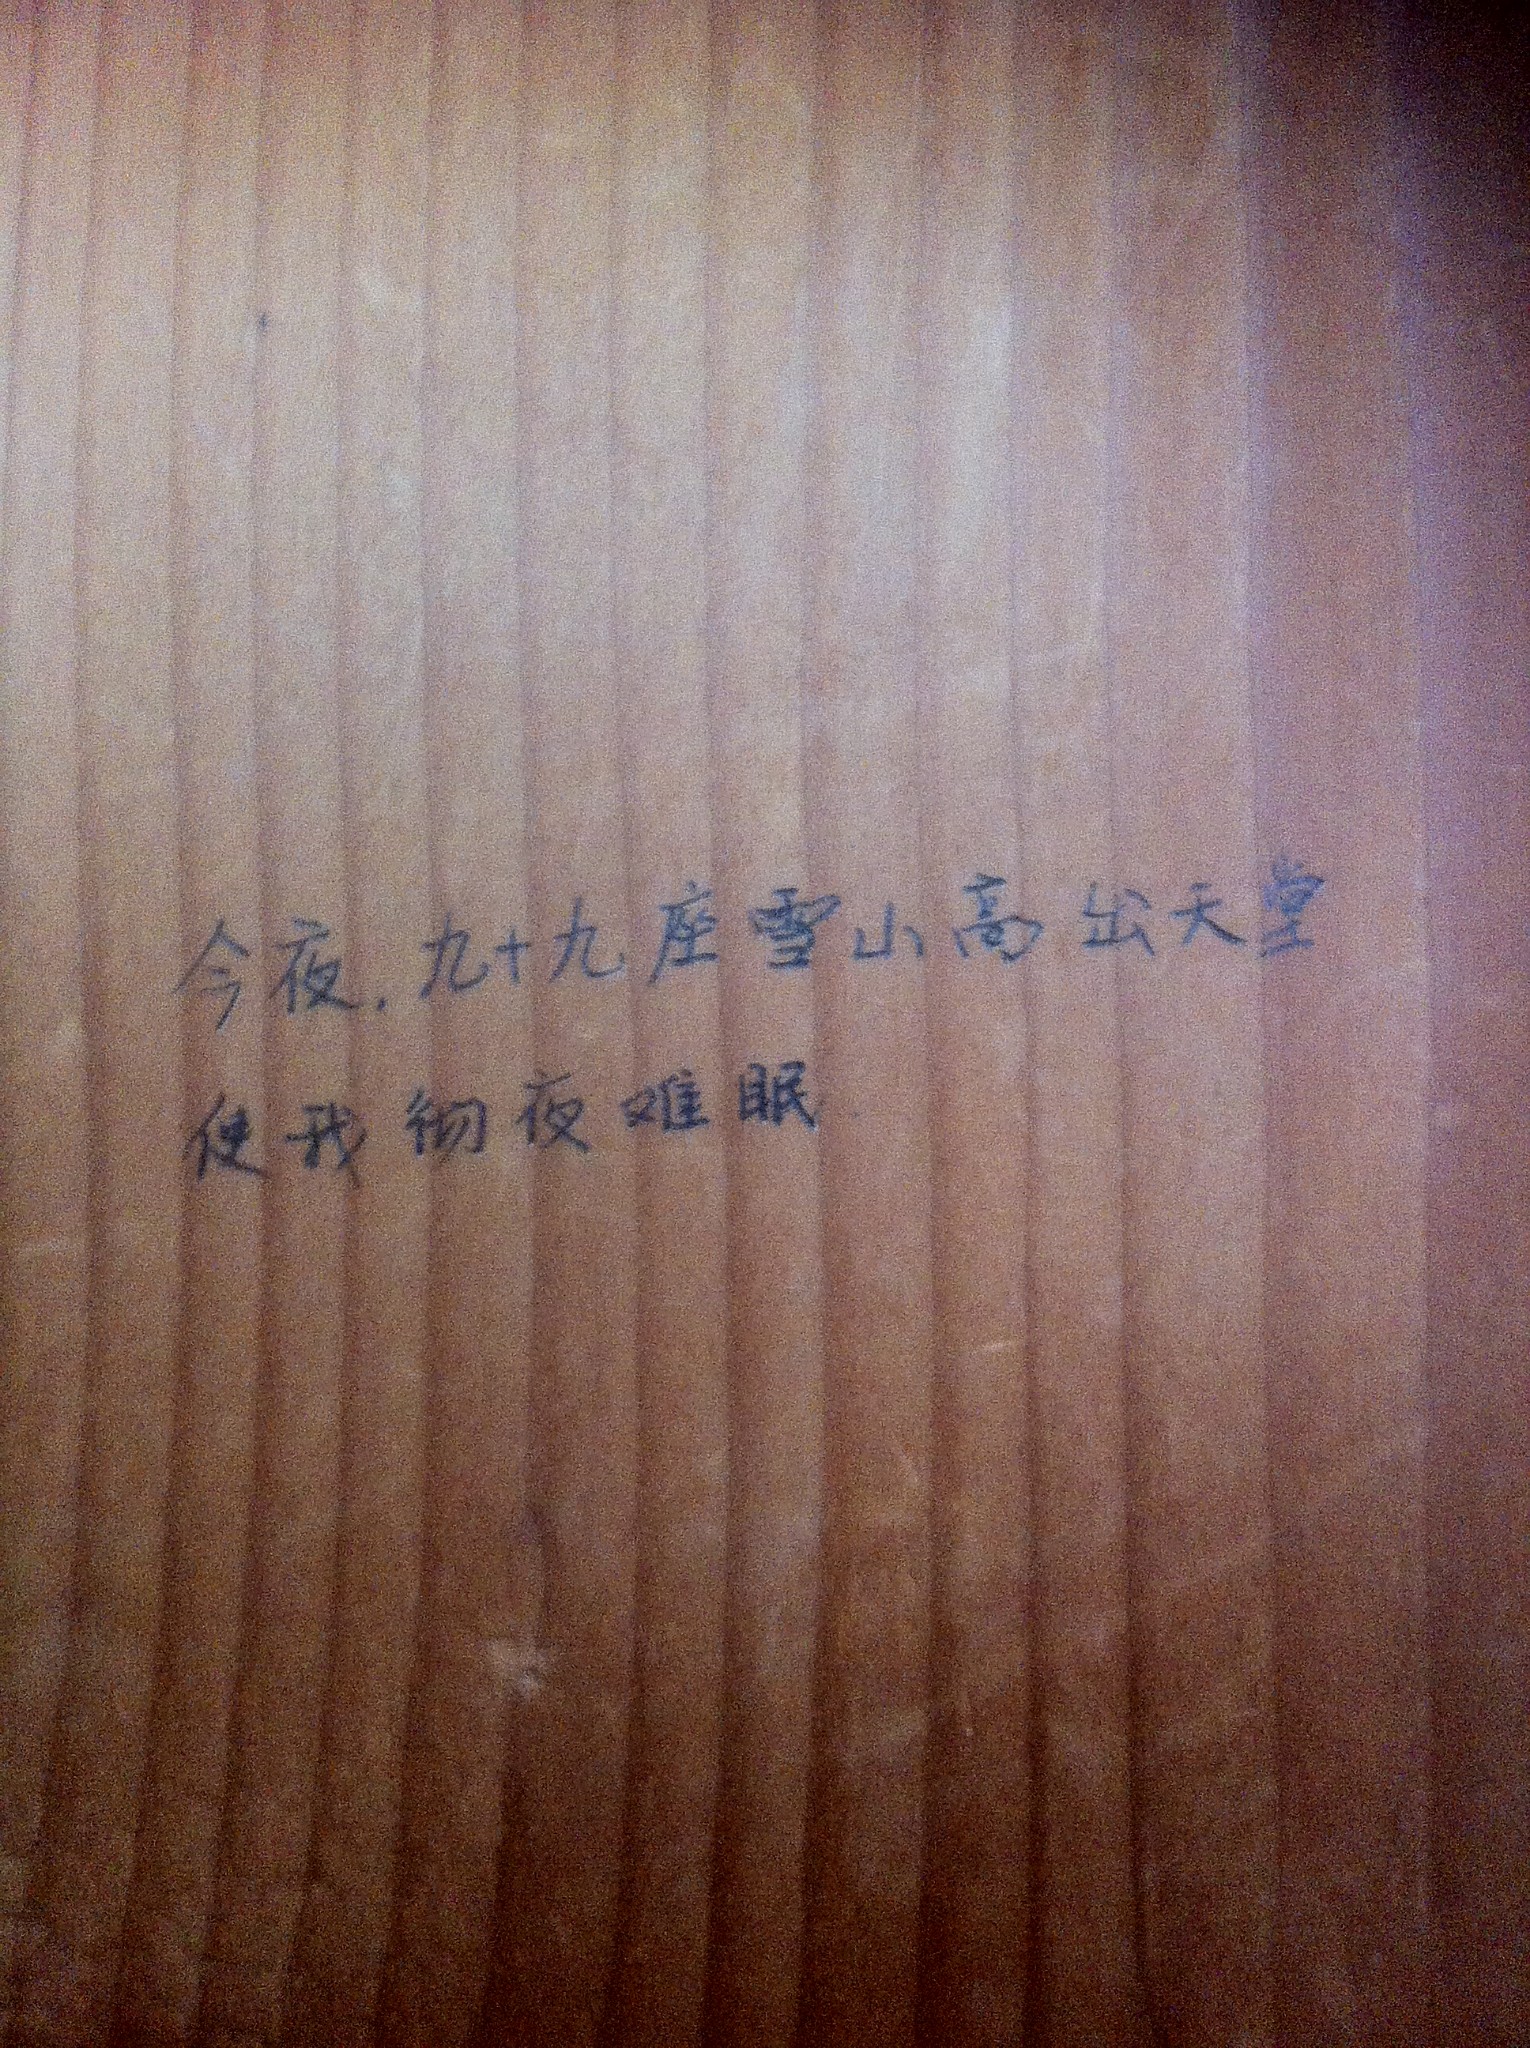 今夜.九十九座雪山高出天堂
使我彻夜难眠